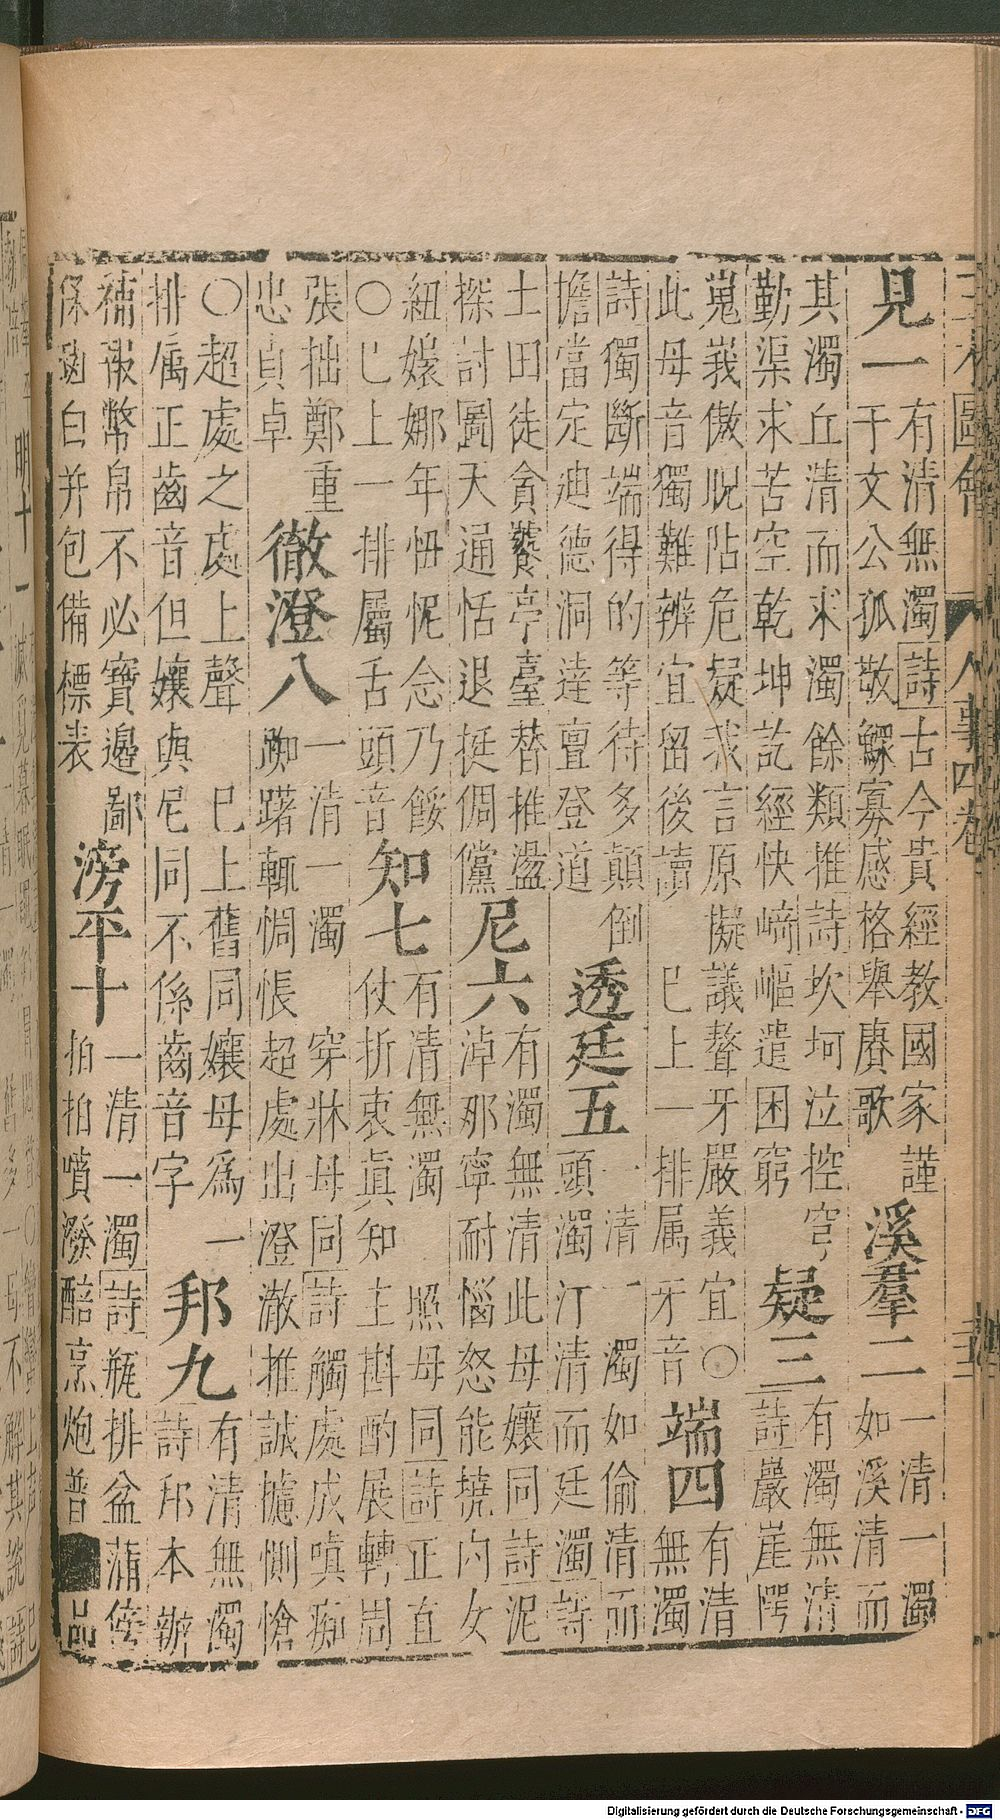 三才圖會 人事四卷
見一
有清無濁詩古今貴經教國家謹
于文公孤敬鰥寡感格舉賡歌
溪羣二
一清一濁
如溪清而
其濁丘清而求濁餘類推詩坎坷泣控穹
勤渠求苦空乾坤訖經快崎嶇遣困窮
疑三
有濁無清
詩嚴崖愕
嵬峩傲睨阽危疑我言原擬議聱牙嚴義宜○
此母音獨難辨宜留後讀 巳上一排属牙音
端四
有清
無濁
詩獨斷端得的等待多顛倒
擔當定廸德洞達亶登道
透廷五
一清一濁如偷清而
頭濁汀清而廷濁詩
土田徒貪饕亭臺替推盪
探討圖天通恬退挺倜儻
尼六
有濁無清此母孃同詩泥
淖那寧耐惱怒能撓内女
紐嬢娜年忸怩念乃餒
○巳上一排屬舌頭音
知七
有清無濁 照母同詩正直
仗折衷眞知主斟酌展轉周
張拙鄭重
忠貞卓
徹澄八
一清一濁 穿牀母同詩觸處成嗔痴
踟躇輒惆悵超處出澄澈推誠攄惻愴
○超處之處上聲 巳上舊同孃母爲一
排属正齒音但孃與尼同不係齒音字
邦九
有清無濁
詩邦本辦
補報幣帛不必寶邊鄙
保剥白并包備標表
滂平十
一清一濁詩瓶排盆蒲傍
拍拍噴潑醅烹炮普品
Digitalisierung gefördert durch die Deutsche Forschungsgemeinschaft - DFG